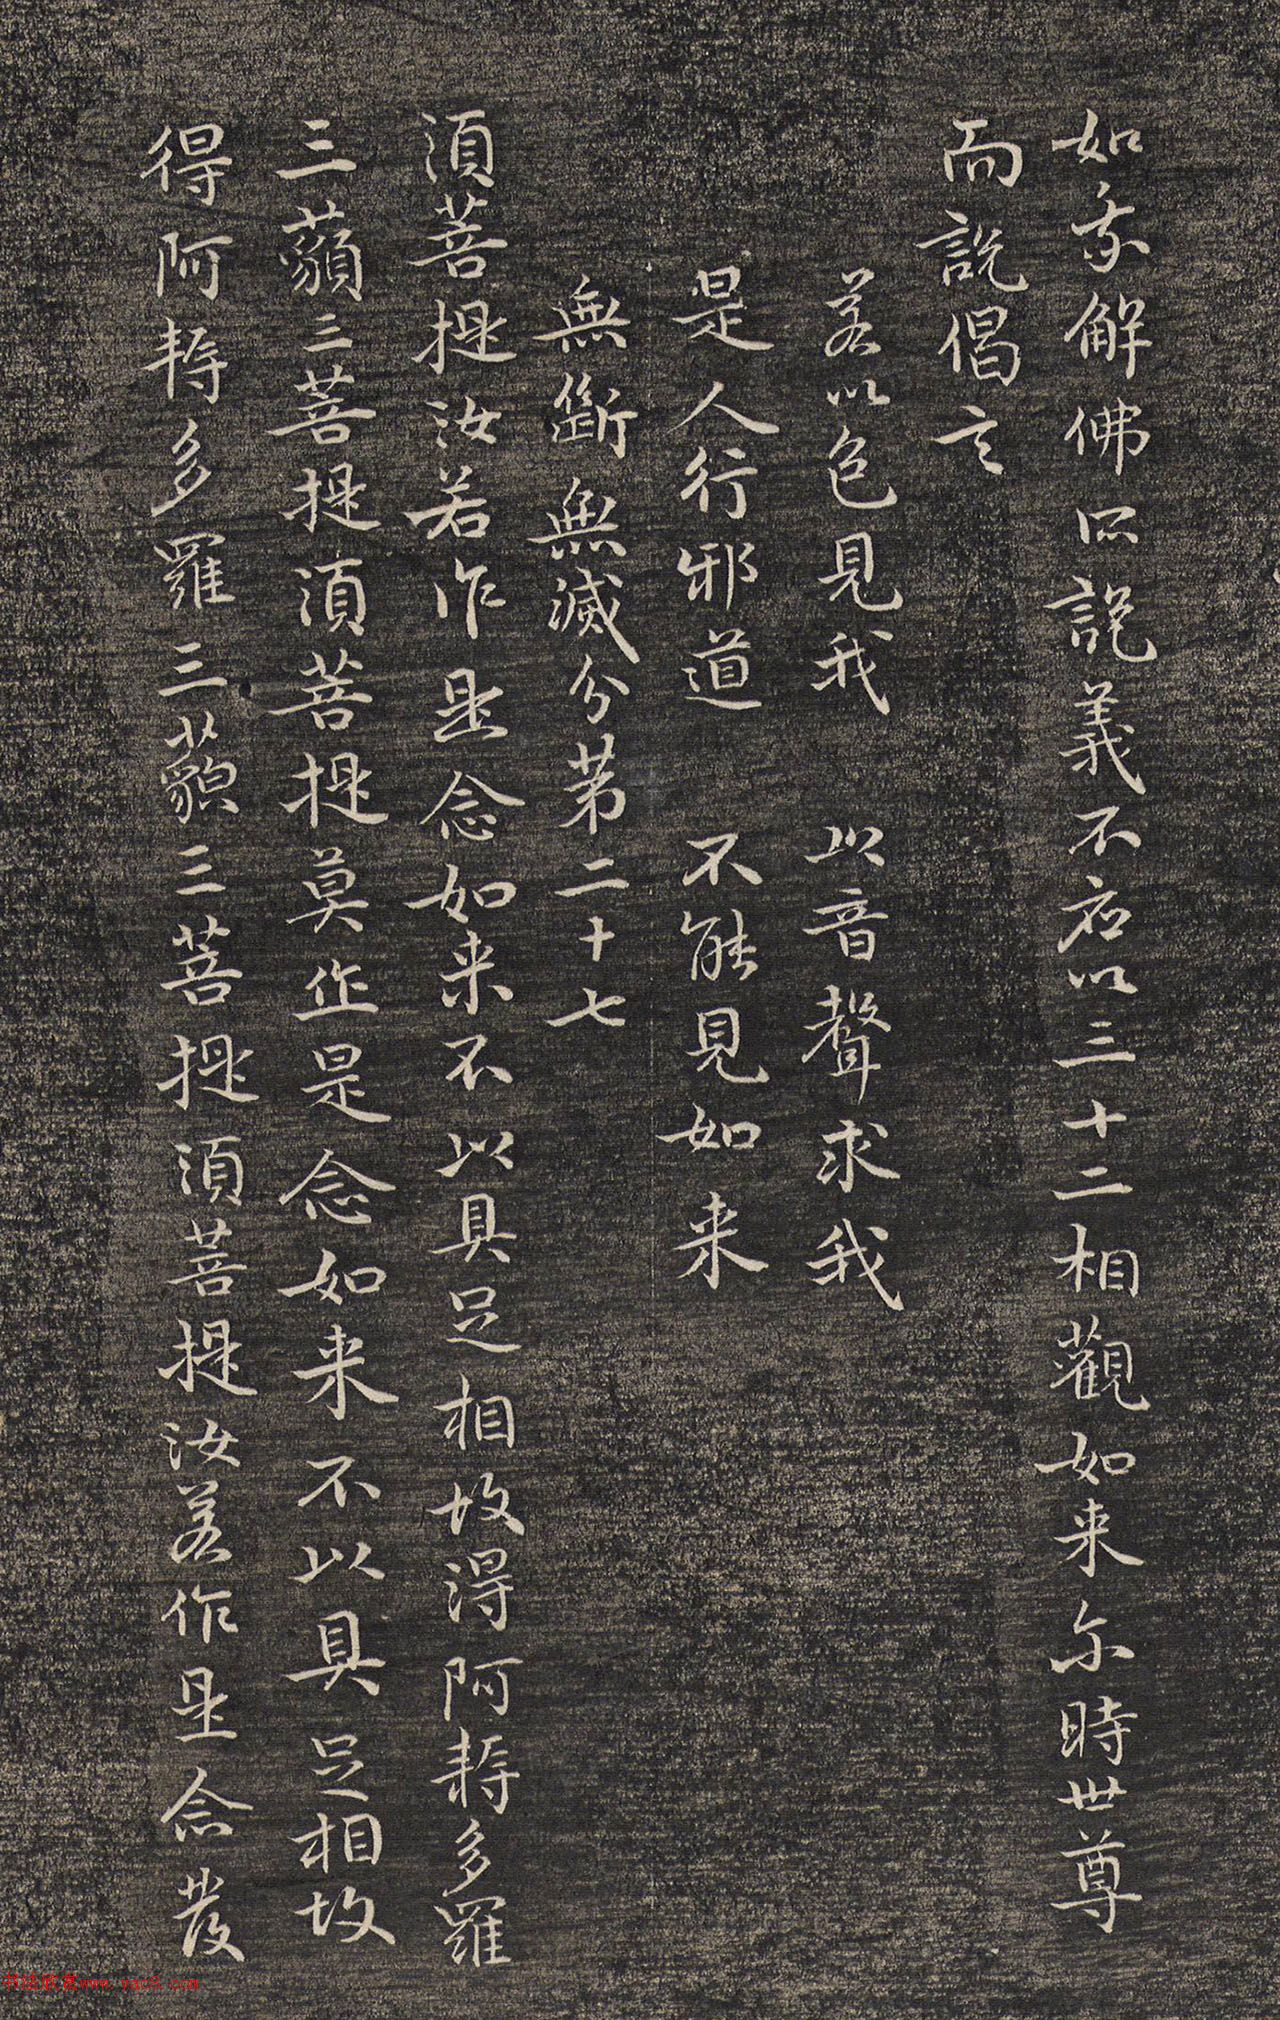 如我解佛所說義不應以三十二相觀如来尔時世尊
而說偈言
若以色見我 以音聲求我
是人行邪道 不能見如来
無斷無滅分第二十七
須菩提汝若作是念如来不以具足相故得阿耨多羅
三藐三菩提須菩提莫作是念如来不以具足相故
得阿耨多羅三藐三菩提須菩提汝若作是念發